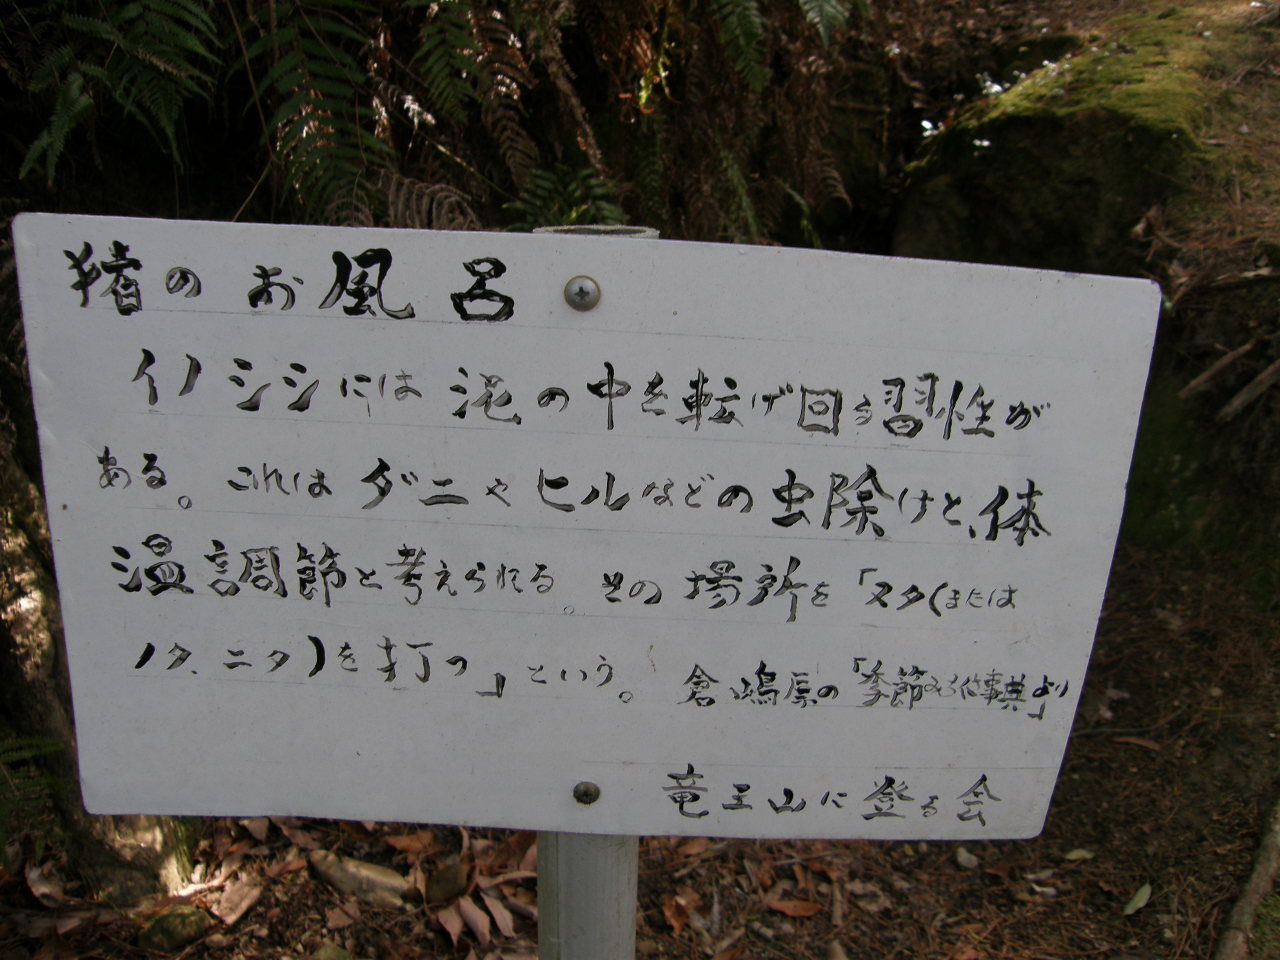 猪のお風呂
イノシシには泥の中を転げ回る習性が
ある。これはダニやヒルなどの虫除けと、体
温調節と考えられる。その場所を「ヌタ(または
ノタ、ニタ)を打つ」という。倉嶋厚の「季節みちくさ事典より」
竜王山に登る会